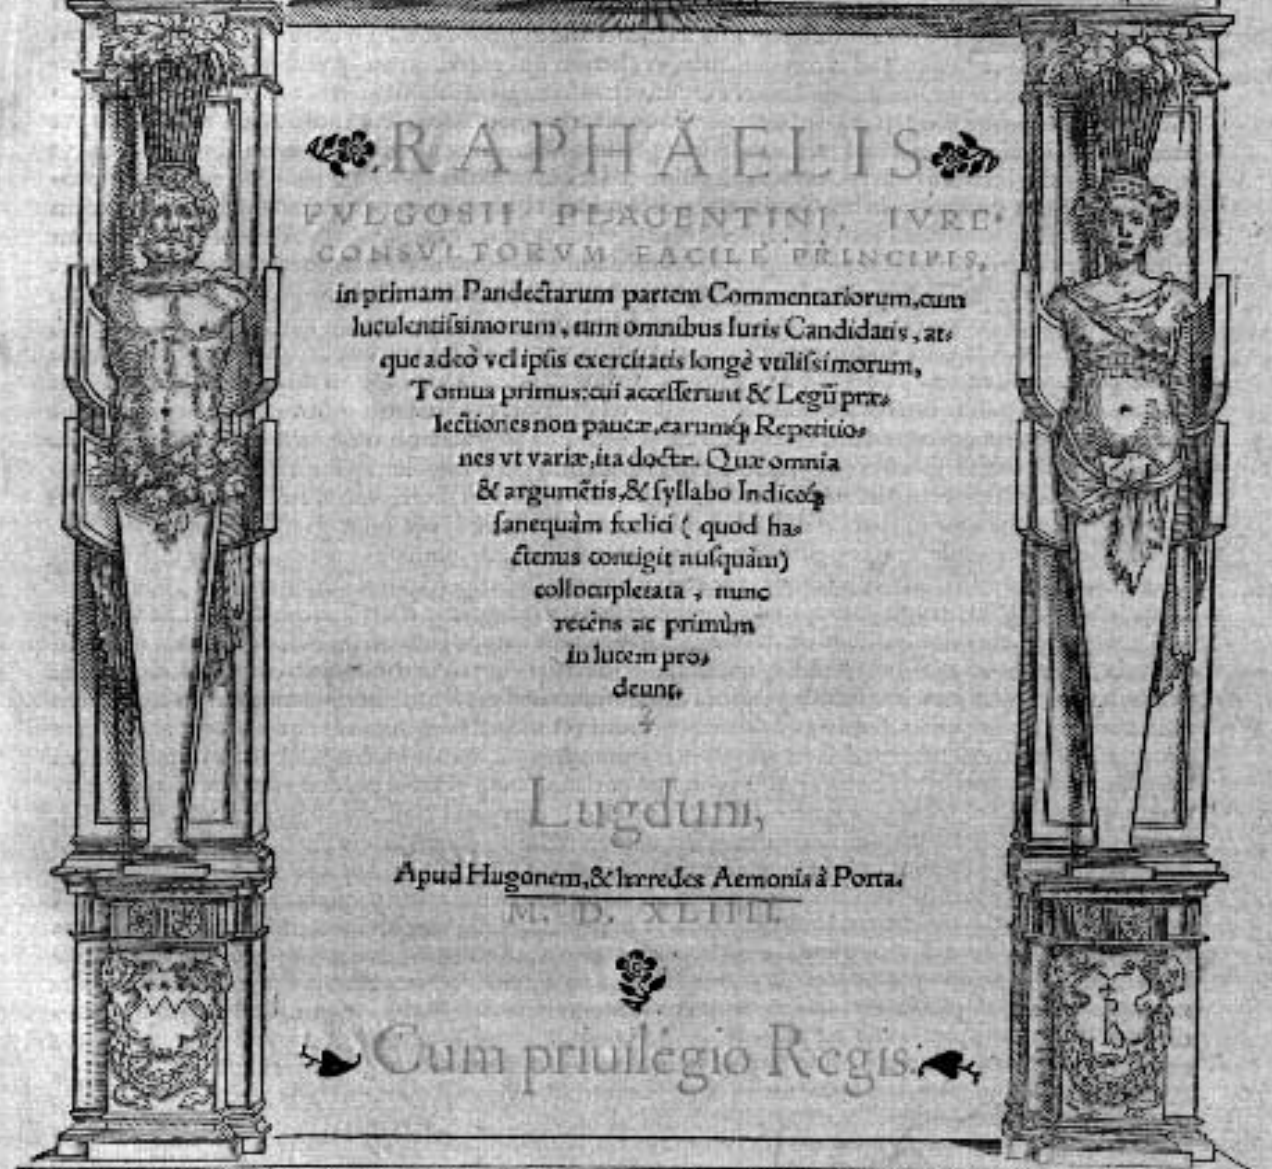 RAPHAELIS
FVLGOSII PLACENTINI, IVRE⸗
CONSVLTORVM FACILE PRINCIPIS,
in primam Pandectarum partem Commentariorum, cum
luculentiſsimorum, tum omnibus Iuris Candidatis, at⸗
que adeò vel ipſis exercitatis longè vtiliſsimorum,
Tomus primus: cui acceſſerunt & Legũ præ⸗
lectiones non paucæ, earumq́; Repetitio⸗
nes vt variæ, ita doctæ. Quæ omnia
& argumẽtis, & ſyllabo Indicoq́;
ſanequàm fœlici ( quod ha⸗
ctenus contigit nuſquàm)
collocupletata, nunc
recèns ac primùm
in lucem pro⸗
deunt.
Lugduni,
Apud Hugonem, & hæredes Aemonis à Porta.
M. D. XLIIII.
Cum priuilégio Regis.